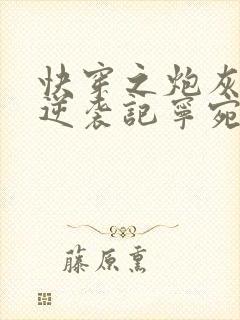 快穿之炮灰
逆袭記寧宛
藤原熏